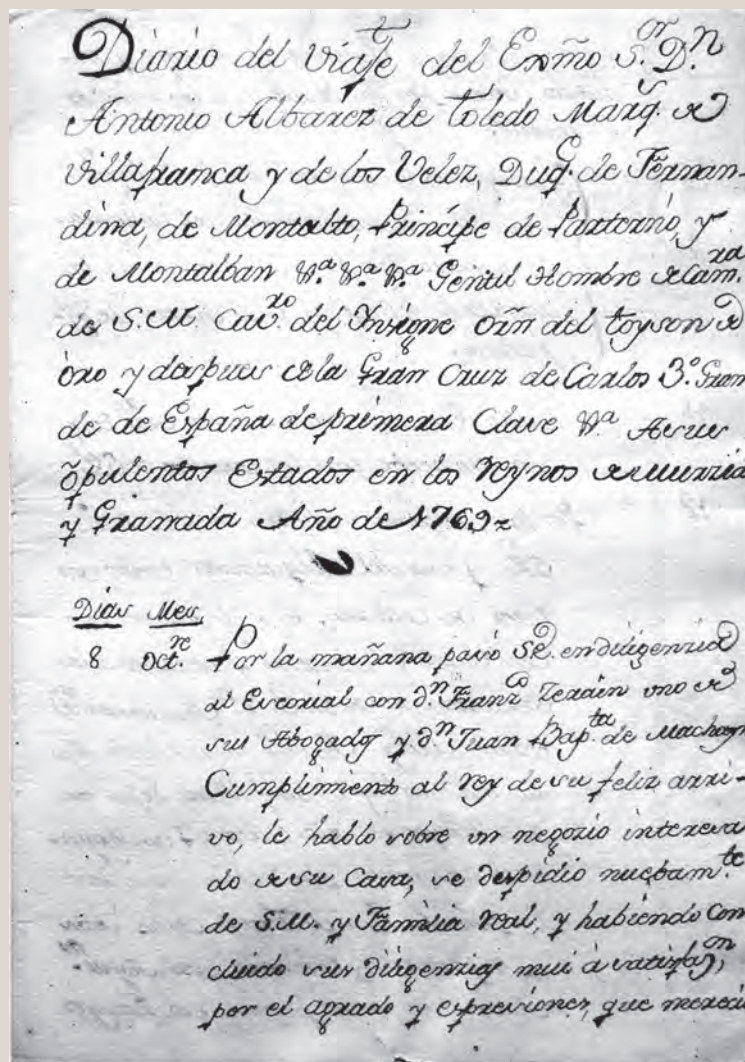 Diario del viaje del Exmõ S.or D.n
Antonio Albarez de toledo Marq.s de
villafranca y de los Velez, Duq.e de Fernan-
dina, de Montalto, Principe de Paterno, y
de Montalban &.a &.a &.a Gentil Hombre de Cam.ra
de S.M. Cav.ro del Insigne Orn̄ del toyson de
òro y despues de la Gran Cruz de Carlos 3.º Gran
de de España de primera Clase &.a A sus
opulentos Estados en los reynos de Murzia
y Granada Año de 1769
Dias Mes,
8 Oct.re Por la mañana pasò S.E. en diligenzia
al Escorial con d.n Fran.co Terain uno de
sus Abogados y d.n Juan Bap.ta de
Cumplimento al rey de su feliz arri-
vo, le hablo sobre un negozio interesa
do de su Casa, se despidio nuebam.te
de S.M. y Familia real, y habiendo Con
cluido sus diligenzias mui à satisfaz.on,
por el agrado y espresiones, que mereciò